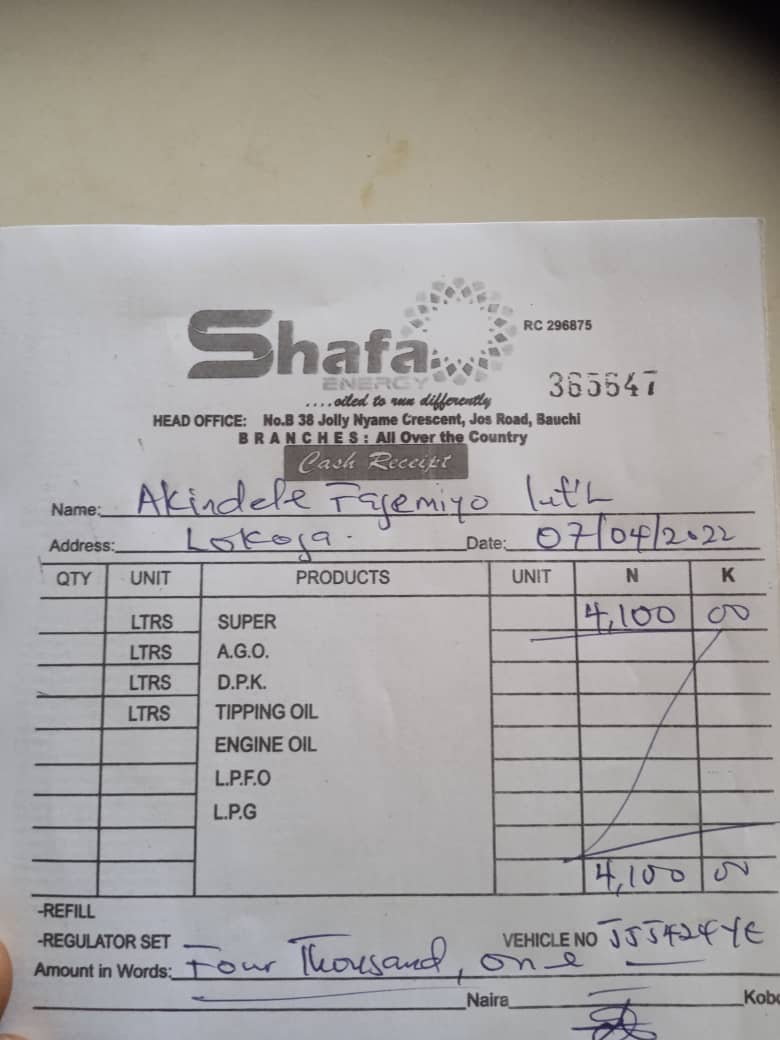 Shafa
ENERGY
RC 296875
365647
....oiled to run differently
HEAD OFFICE: No.B 38 Jolly Nyame Crescent, Jos Road, Bauchi
BRANCHES: All Over the Country
Cash Receipt
Name: Akindele Fasemiyo Int'L
Address: Lokoja. Date: 07/04/2022
QTY UNIT PRODUCTS UNIT N K
LTRS SUPER 4,100 00
LTRS A.G.O.
LTRS D.P.K.
LTRS TIPPING OIL
ENGINE OIL
L.P.F.O
L.P.G
4,100 00
-REFILL
-REGULATOR SET VEHICLE NO JJJ424YE
Amount in Words: Four Thousand, one
Naira Kobo